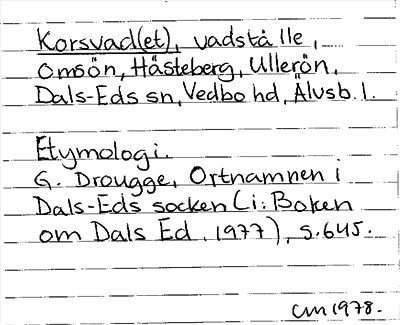 Korsvad(et), vadställe,
Omsön, Hästeberg, Ullerön,
Dals-Eds sn, Vedbo hd, Älvsb. l.
Etymologi.
G. Drougge, Ortnamnen i
Dals-Eds socken (i: Boken
om Dals Ed. 1977), s. 645.
CM 1978.